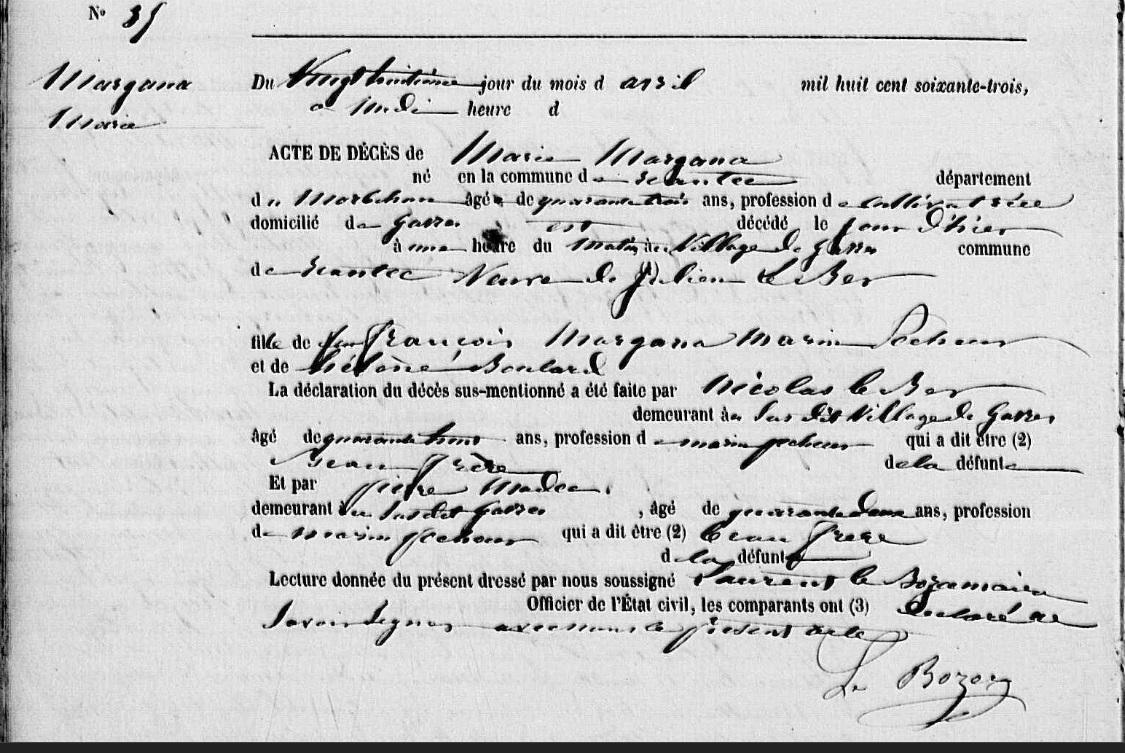 N° 35
Margana
Marie
Du Vingt huitième jour du mois d avril mil huit cent soixante-trois,
a Midi heure d
ACTE DE DÉCÈS de Marie Margana
né en la commune de département
du Morbihan âgée de quarante trois ans, profession de Cultivatrice
domicilié de Gavres est décédé le jour d'hier
à une heure du matin, au Village de Gavres commune
de Veuve de Julien Le Ber
fille de feu François Margana Marin Pecheur
et de hélène Boulard
La déclaration du décès sus-mentionné a été faite par Nicolas le Ber
demeurant au Sus dit Village de Gavres
âgé de quarante ans, profession de marin pecheur qui a dit être (2)
Beau frère de la défunte
Et par pierre Madec
demeurant au Susdit Gavres, âgé de quarante deux ans, profession
de marin pecheur qui a dit être (2) beau frere
de la défunte
Lecture donnée du présent dressé par nous soussigné Laurent le Bozec maire
Officier de l'État civil, les comparants ont (3) déclaré ne
Savoir Signer avec nous le présent acte
Le Bozec